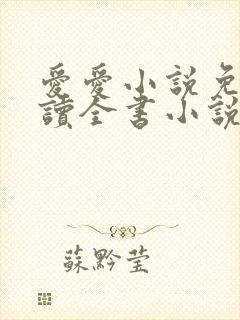 愛愛小說免
讀全書小說
蘇黔莹